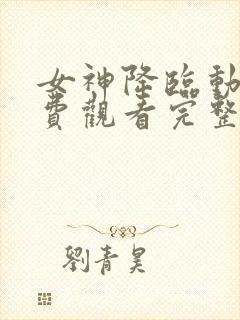 女神降臨動
費觀看完整
劉青昊